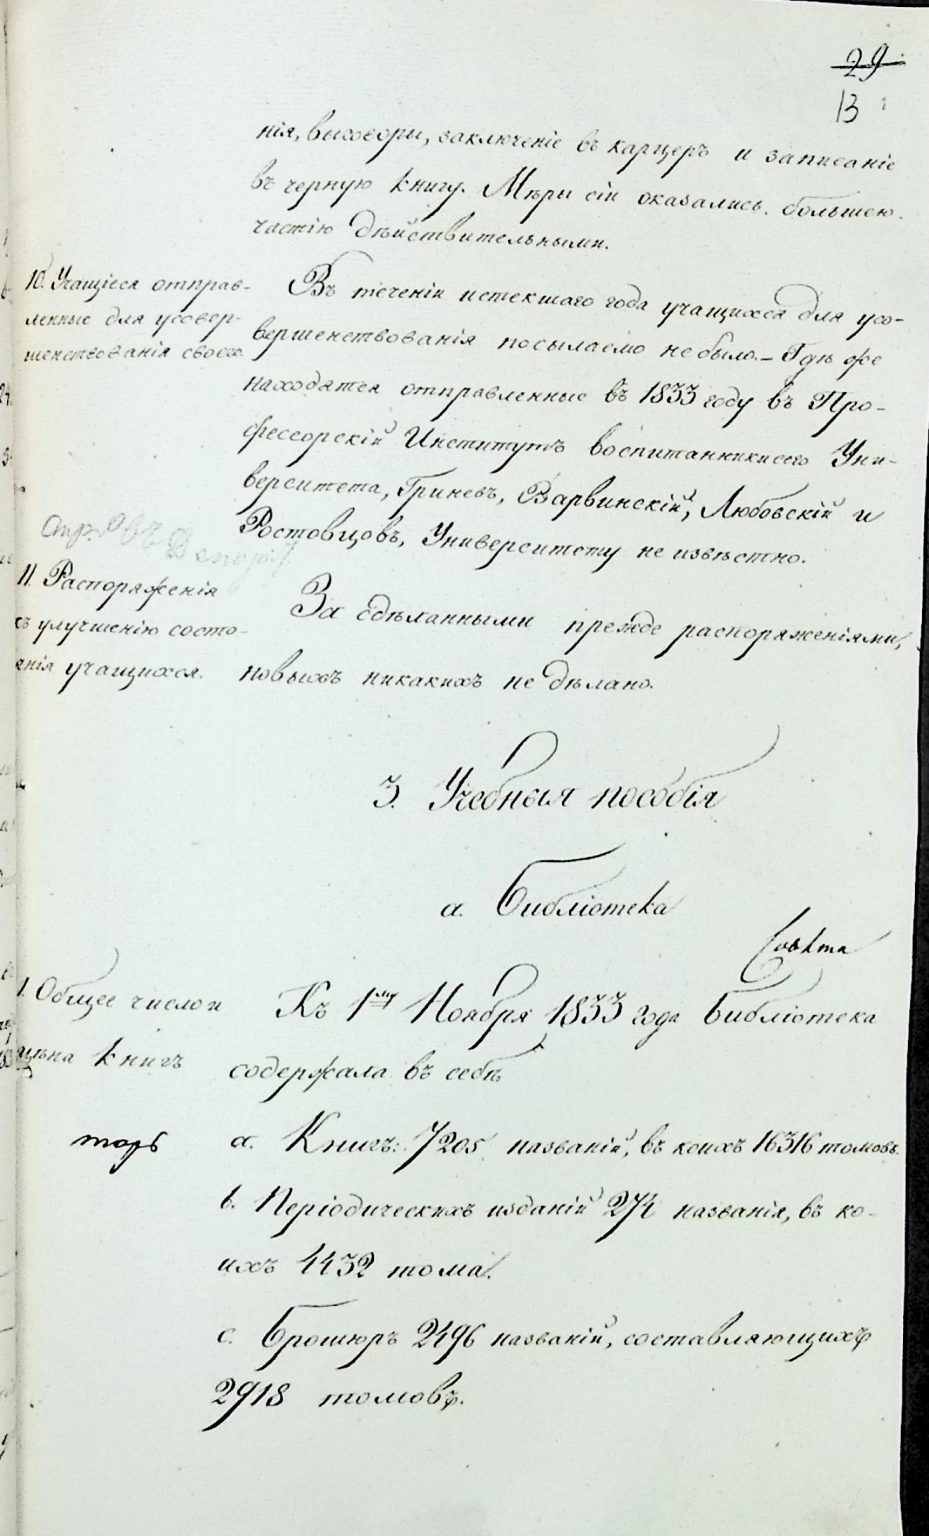 29
13
нія, выговоры, заключеніе въ карцеръ и записаніе
въ черную книгу. Мѣры сіи оказались большею
частію дѣйствительными.
10. Учащіеся отправ-
ленные для усовер-
шенствованія своего
Въ теченіи истекшаго года учащихся для усо-
вершенствованія посылаемо не было. – Гдѣ же
находятся отправленные въ 1833 году въ Про-
фессорскій Институтъ воспитанники сего Уни-
верситета, Гриневъ, Варвинскій, Любовскій и
Ростовцовъ, Университету не извѣстно.
11. Распоряженія
къ улучшенію состо-
янія учащихся.
За сдѣланными прежде распоряженіями,
новыхъ никакихъ не дѣлано.
3. Учебныя пособія
а. Библіотека
1. Общее число и
цѣна книгъ
Къ 1му Ноября 1833 года Библіотека
содержала въ себѣ
а. Книгъ: 7205 названій, въ коихъ 16316 томовъ.
b. Періодическихъ изданій 274 названія, въ ко-
ихъ 4432 тома.
c. Брошюръ 2496 названій, составляющихъ
2918 томовъ.